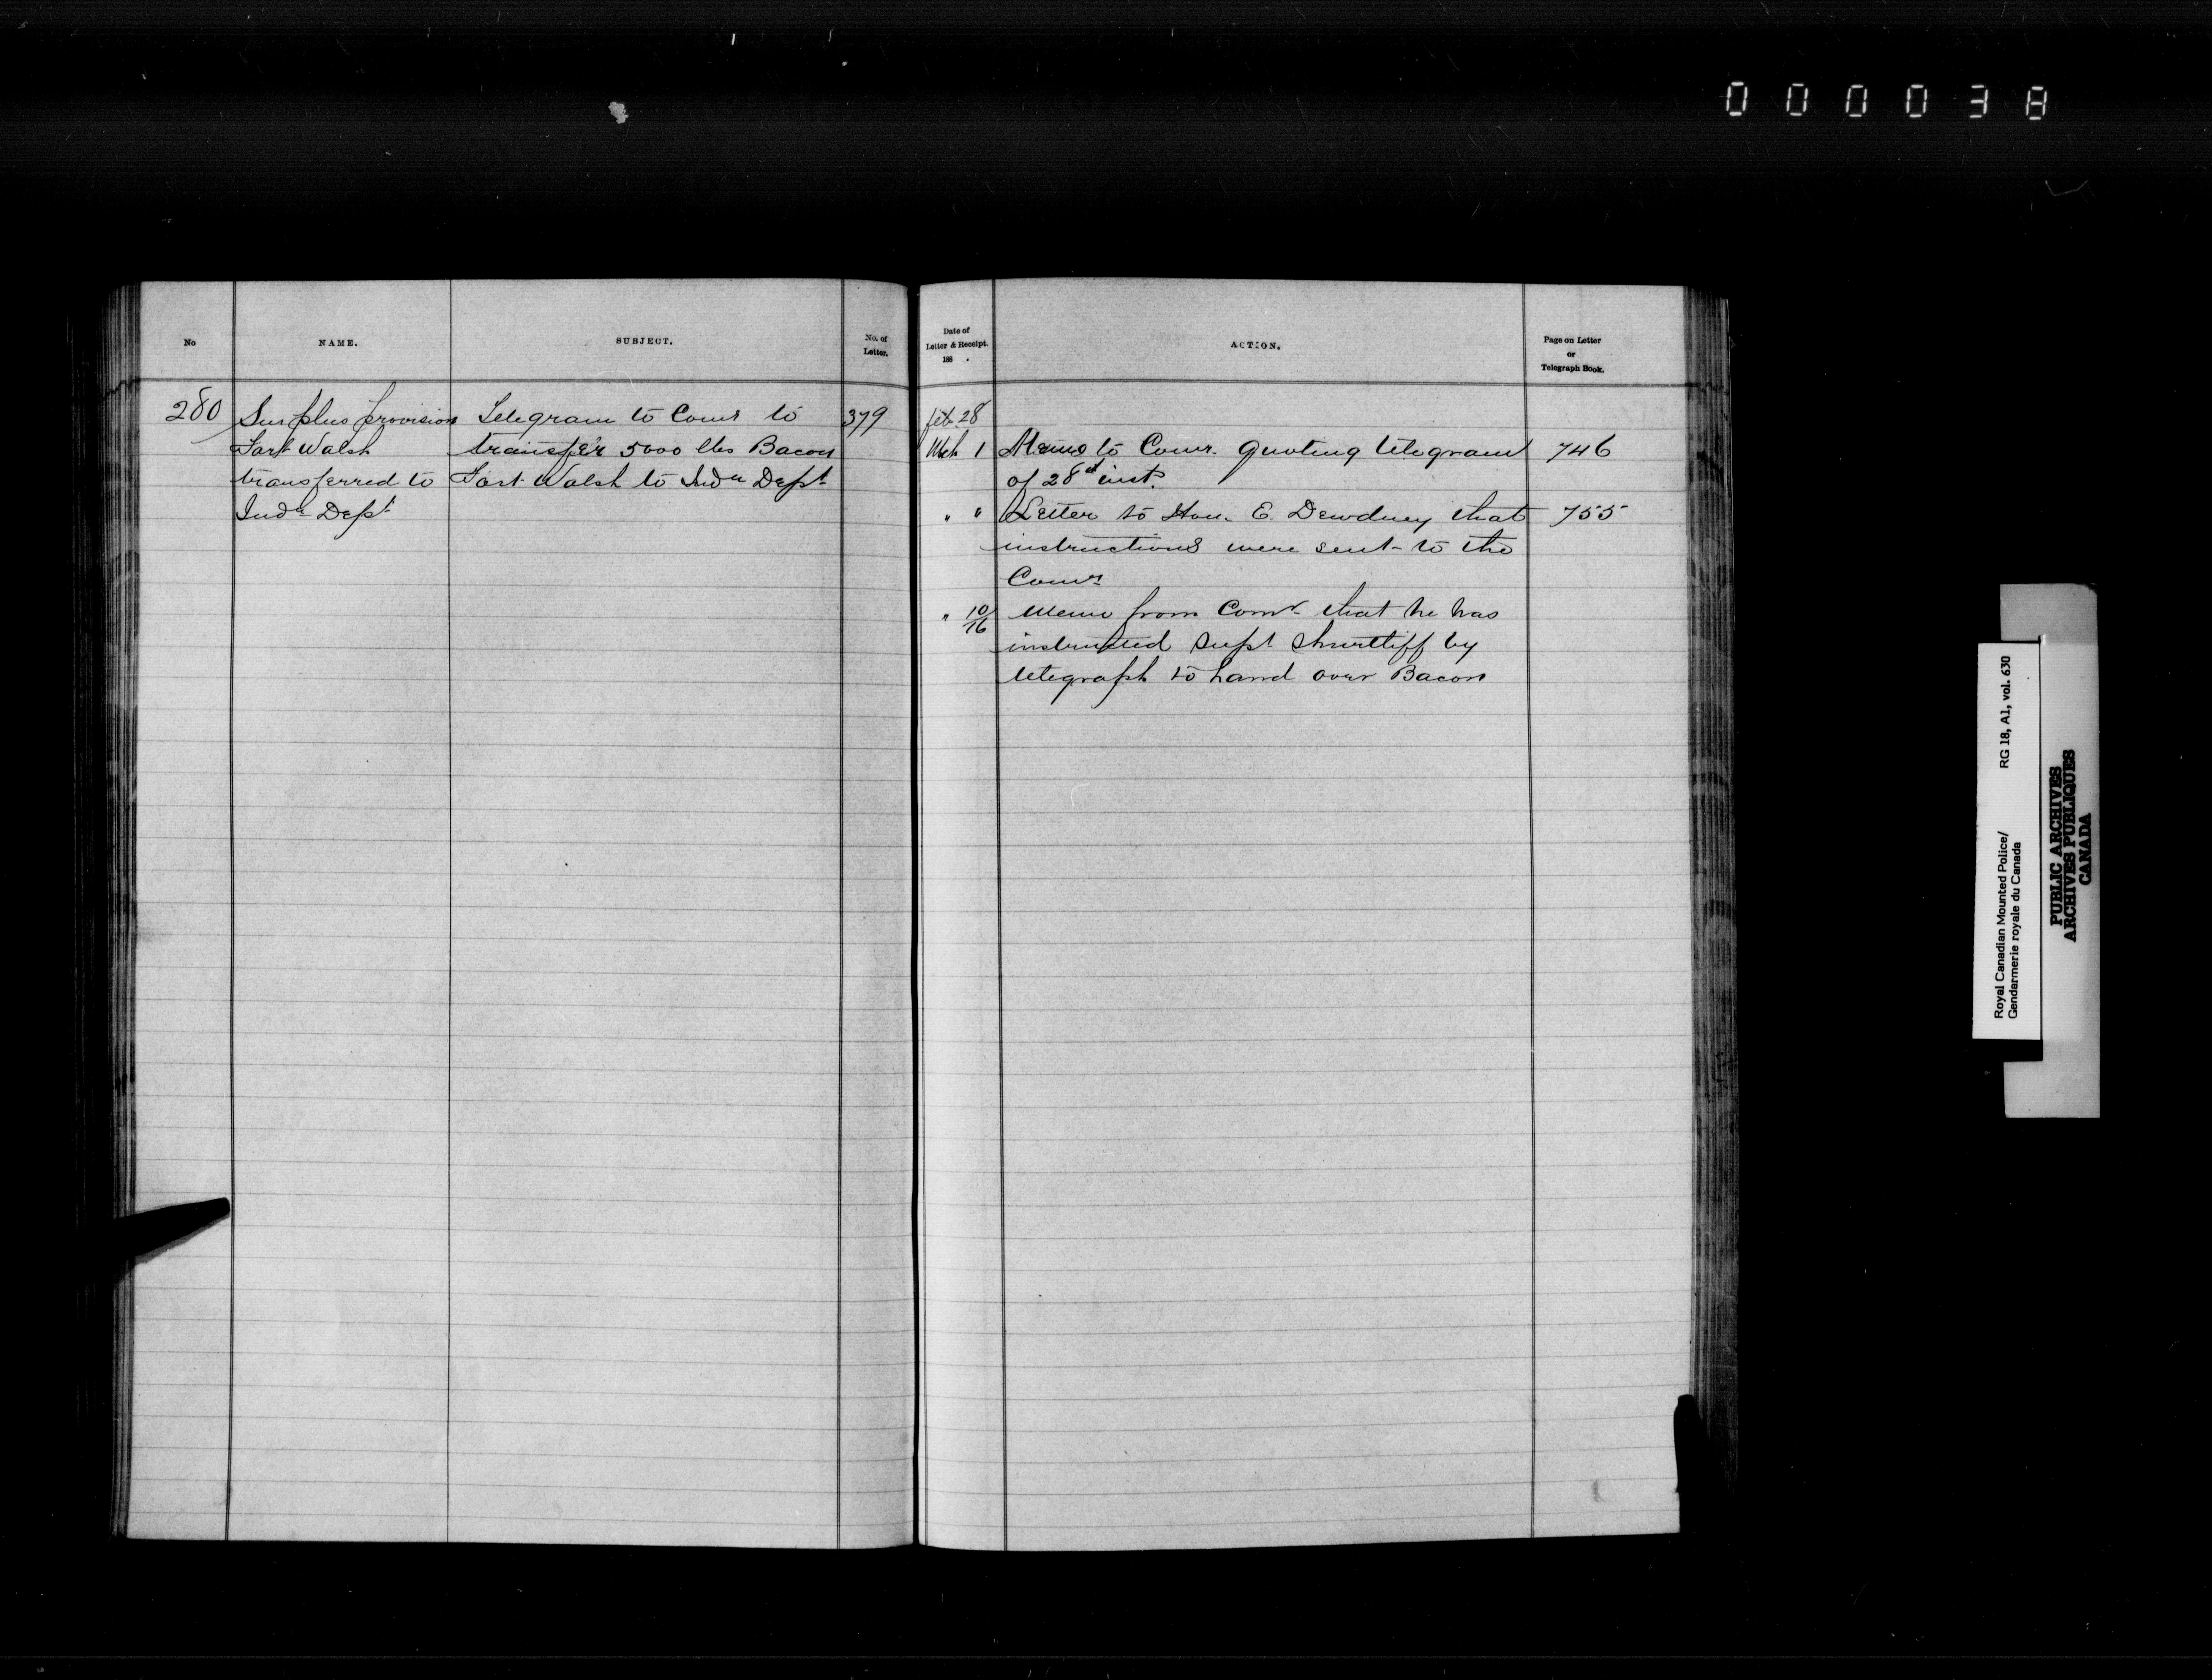 000038
No
NAME.
SUBJECT.
No. of
Letter.
280
Surplus provision
Fort Walsh
transferred to
Indn Dept
Telegram to Comr to
transfer 5000 lbs Bacon
Fort Walsh to Indn Dept
379
Date of
Letter & Receipt.
188 .
ACTION.
Page on Letter
or
Telegraph Book.
Feb 28
Mch 1 Memo to Comr. quoting telegram 746
of 28th inst.
" " Letter to Hon. E. Dewdney that 755
instructions were sent to the
Comr
" 10/16 Memo from Comr that he has
instructed Supt Shurtliff by
telegraph to hand over Bacon
Royal Canadian Mounted Police/ RG 18, A1, vol. 630
Gendarmerie royale du Canada
PUBLIC ARCHIVES
ARCHIVES PUBLIQUES
CANADA